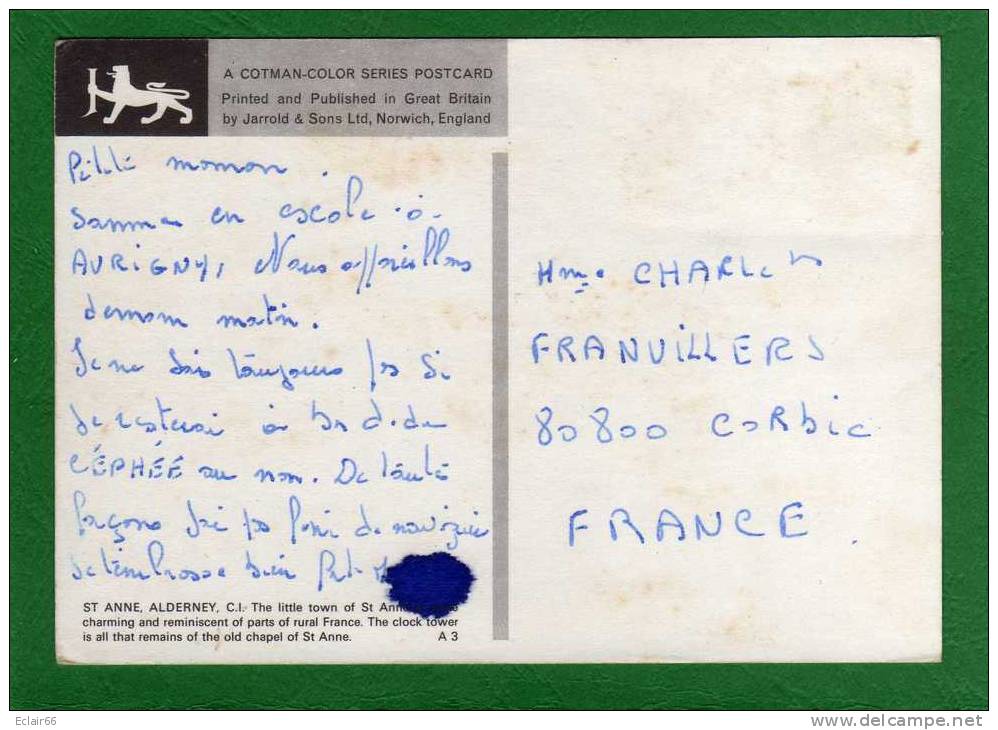 A COTMAN-COLOR SERIES POSTCARD
Printed and Published in Great Britain
by Jarrold & Sons Ltd, Norwich, England
Petite moman.
Somme en escale à
AURIGNY, Nous appareillons
demain matin.
Je ne sais toujours pas si
je resterai à bord du
CÉPHÉE ou non. De toute
façons j'ai pas fini de naviguer
Je t'embrasse bien
ST ANNE, ALDERNEY, C.I. The little town of St Anne
charming and reminiscent of parts of rural France. The clock tower
is all that remains of the old chapel of St Anne. A 3
Mme
FRANVILLERS
80800 CORbie
FRANCE.
Eclair66
http://www.delcampe.net